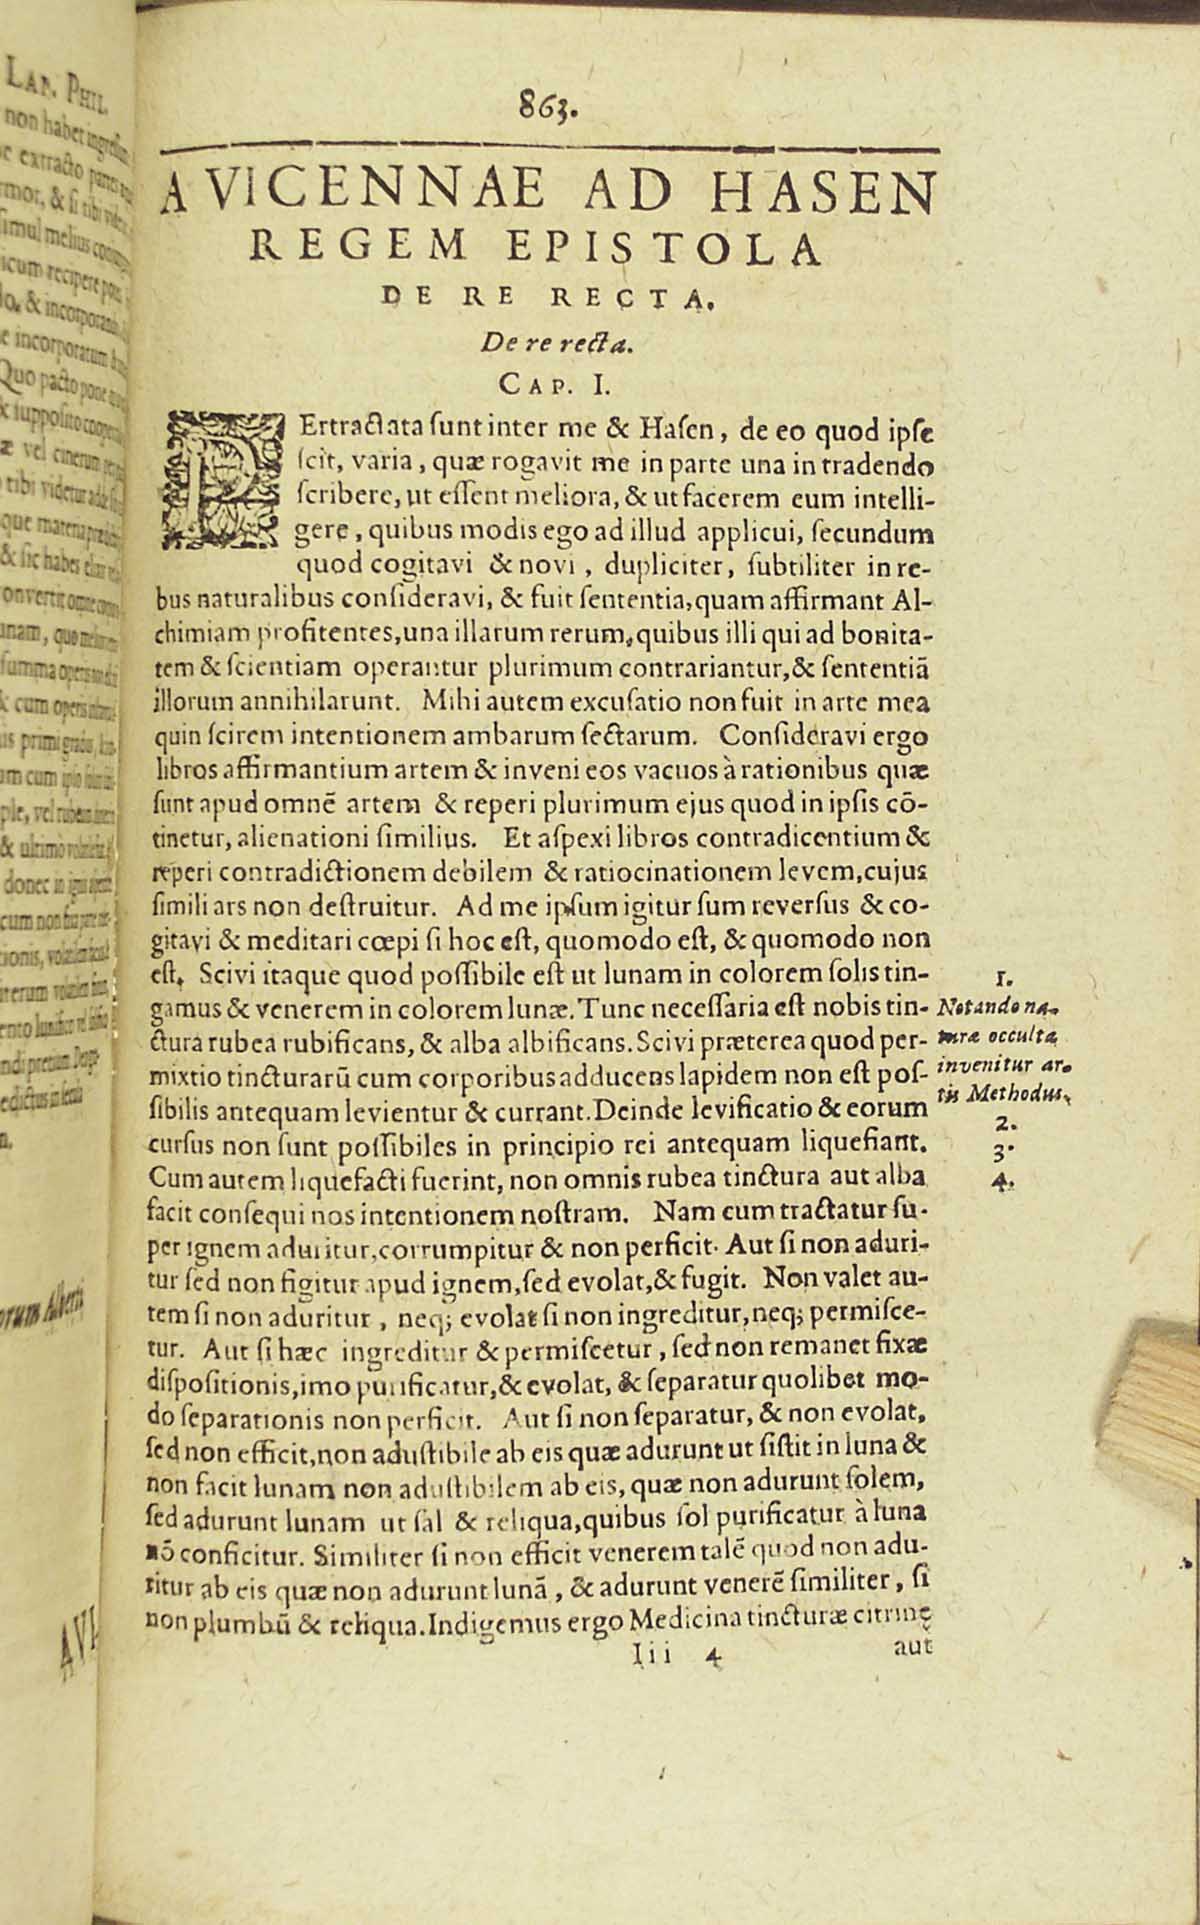 863.
AVICENNAE AD HASEN
REGEM EPISTOLA
DE RE RECTA.
De re recta.
CAP. I.
PErtractata sunt inter me & Hasen, de eo quod ipse
scit, varia, quæ rogavit me in parte una in tradendo
scribere, ut essent meliora, & ut facerem eum intelli-
gere, quibus modis ego ad illud applicui, secundum
quod cogitavi & novi, dupliciter, subtiliter in re-
bus naturalibus consideravi, & fuit sententia, quam affirmant Al-
chimiam profitentes, una illarum rerum, quibus illi qui ad bonita-
tem & scientiam operantur plurimum contrariantur, & sententiā
illorum annihilarunt. Mihi autem excusatio non fuit in arte mea
quin scirem intentionem ambarum sectarum. Consideravi ergo
libros affirmantium artem & inveni eos vacuos à rationibus quæ
sunt apud omnē artem & reperi plurimum ejus quod in ipsis cō-
tinetur, alienationi similius. Et aspexi libros contradicentium &
reperi contradictionem debilem & ratiocinationem levem, cujus
simili ars non destruitur. Ad me ipsum igitur sum reversus & co-
gitavi & meditari cœpi si hoc est, quomodo est, & quomodo non
est. Scivi itaque quod possibile est ut lunam in colorem solis tin-
gamus & venerem in colorem lunæ. Tunc necessaria est nobis tin-
ctura rubea rubificans, & alba albificans. Scivi præterea quod per-
mixtio tincturarū cum corporibus adducens lapidem non est pos-
sibilis antequam levientur & currant. Deinde levificatio & eorum
cursus non sunt possibiles in principio rei antequam liquefiant.
Cum autem liquefacti fuerint, non omnis rubea tinctura aut alba
facit consequi nos intentionem nostram. Nam cum tractatur su-
per ignem aduritur, corrumpitur & non perficit. Aut si non aduri-
tur sed non figitur apud ignem, sed evolat, & fugit. Non valet au-
tem si non aduritur, neq; evolat si non ingreditur, neq; permisce-
tur. Aut si hæc ingreditur & permiscetur, sed non remanet fixæ
dispositionis, imo purificatur, & evolat, & separatur quolibet mo-
do separationis non perficit. Aut si non separatur, & non evolat,
sed non efficit, non adustibile ab eis quæ adurunt ut sistit in luna &
non facit lunam non adustibilem ab eis, quæ non adurunt solem,
sed adurunt lunam ut sal & reliqua, quibus sol purificatur à luna
nō conficitur. Similiter si non efficit venerem talē quod non adu-
ritur ab eis quæ non adurunt lunā, & adurunt venerē similiter, si
non plumbū & reliqua. Indigemus ergo Medicina tincturæ citrinę
Iii 4 aut
1.
Notando na-
turæ occulta
invenitur ar-
tis Methodus.
2.
3.
4.
LAP. PHIL.
non habet ingressum